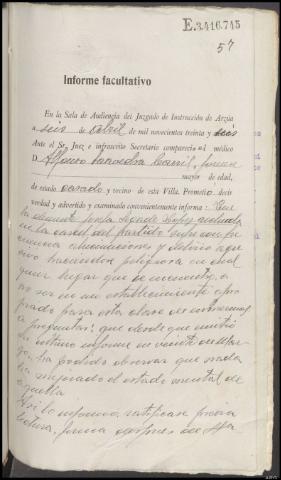 E.3.416.745
57
Informe facultativo
En la Sala de Audiencia del Juzgado de Instrucción de Arzúa
a seis de abril de mil novecientos treinta y seis
Ante el Sr. Juez e infrascrito Secretario compareció el médico
D. Alfonso
mayor de edad,
de estado casado y vecino de esta Villa. Prometió decir
verdad y advertido y examinado convenientemente informa: Que
la demente recluida
en la carcel del partido sufre con fre
cuencia alucinaciones y delirio agre
sivo haciendose peligrosa en cual
quier lugar que se encuentre, a
no ser en un establecimiento apro
piado para esta clase de enfermos
que desde que emitió
su último informe en veinte de Mar
zo, ha podido observar que nada
ha mejorado el estado mental de
aquella
Así lo informa, ratificase previa
lectura, firma despues de